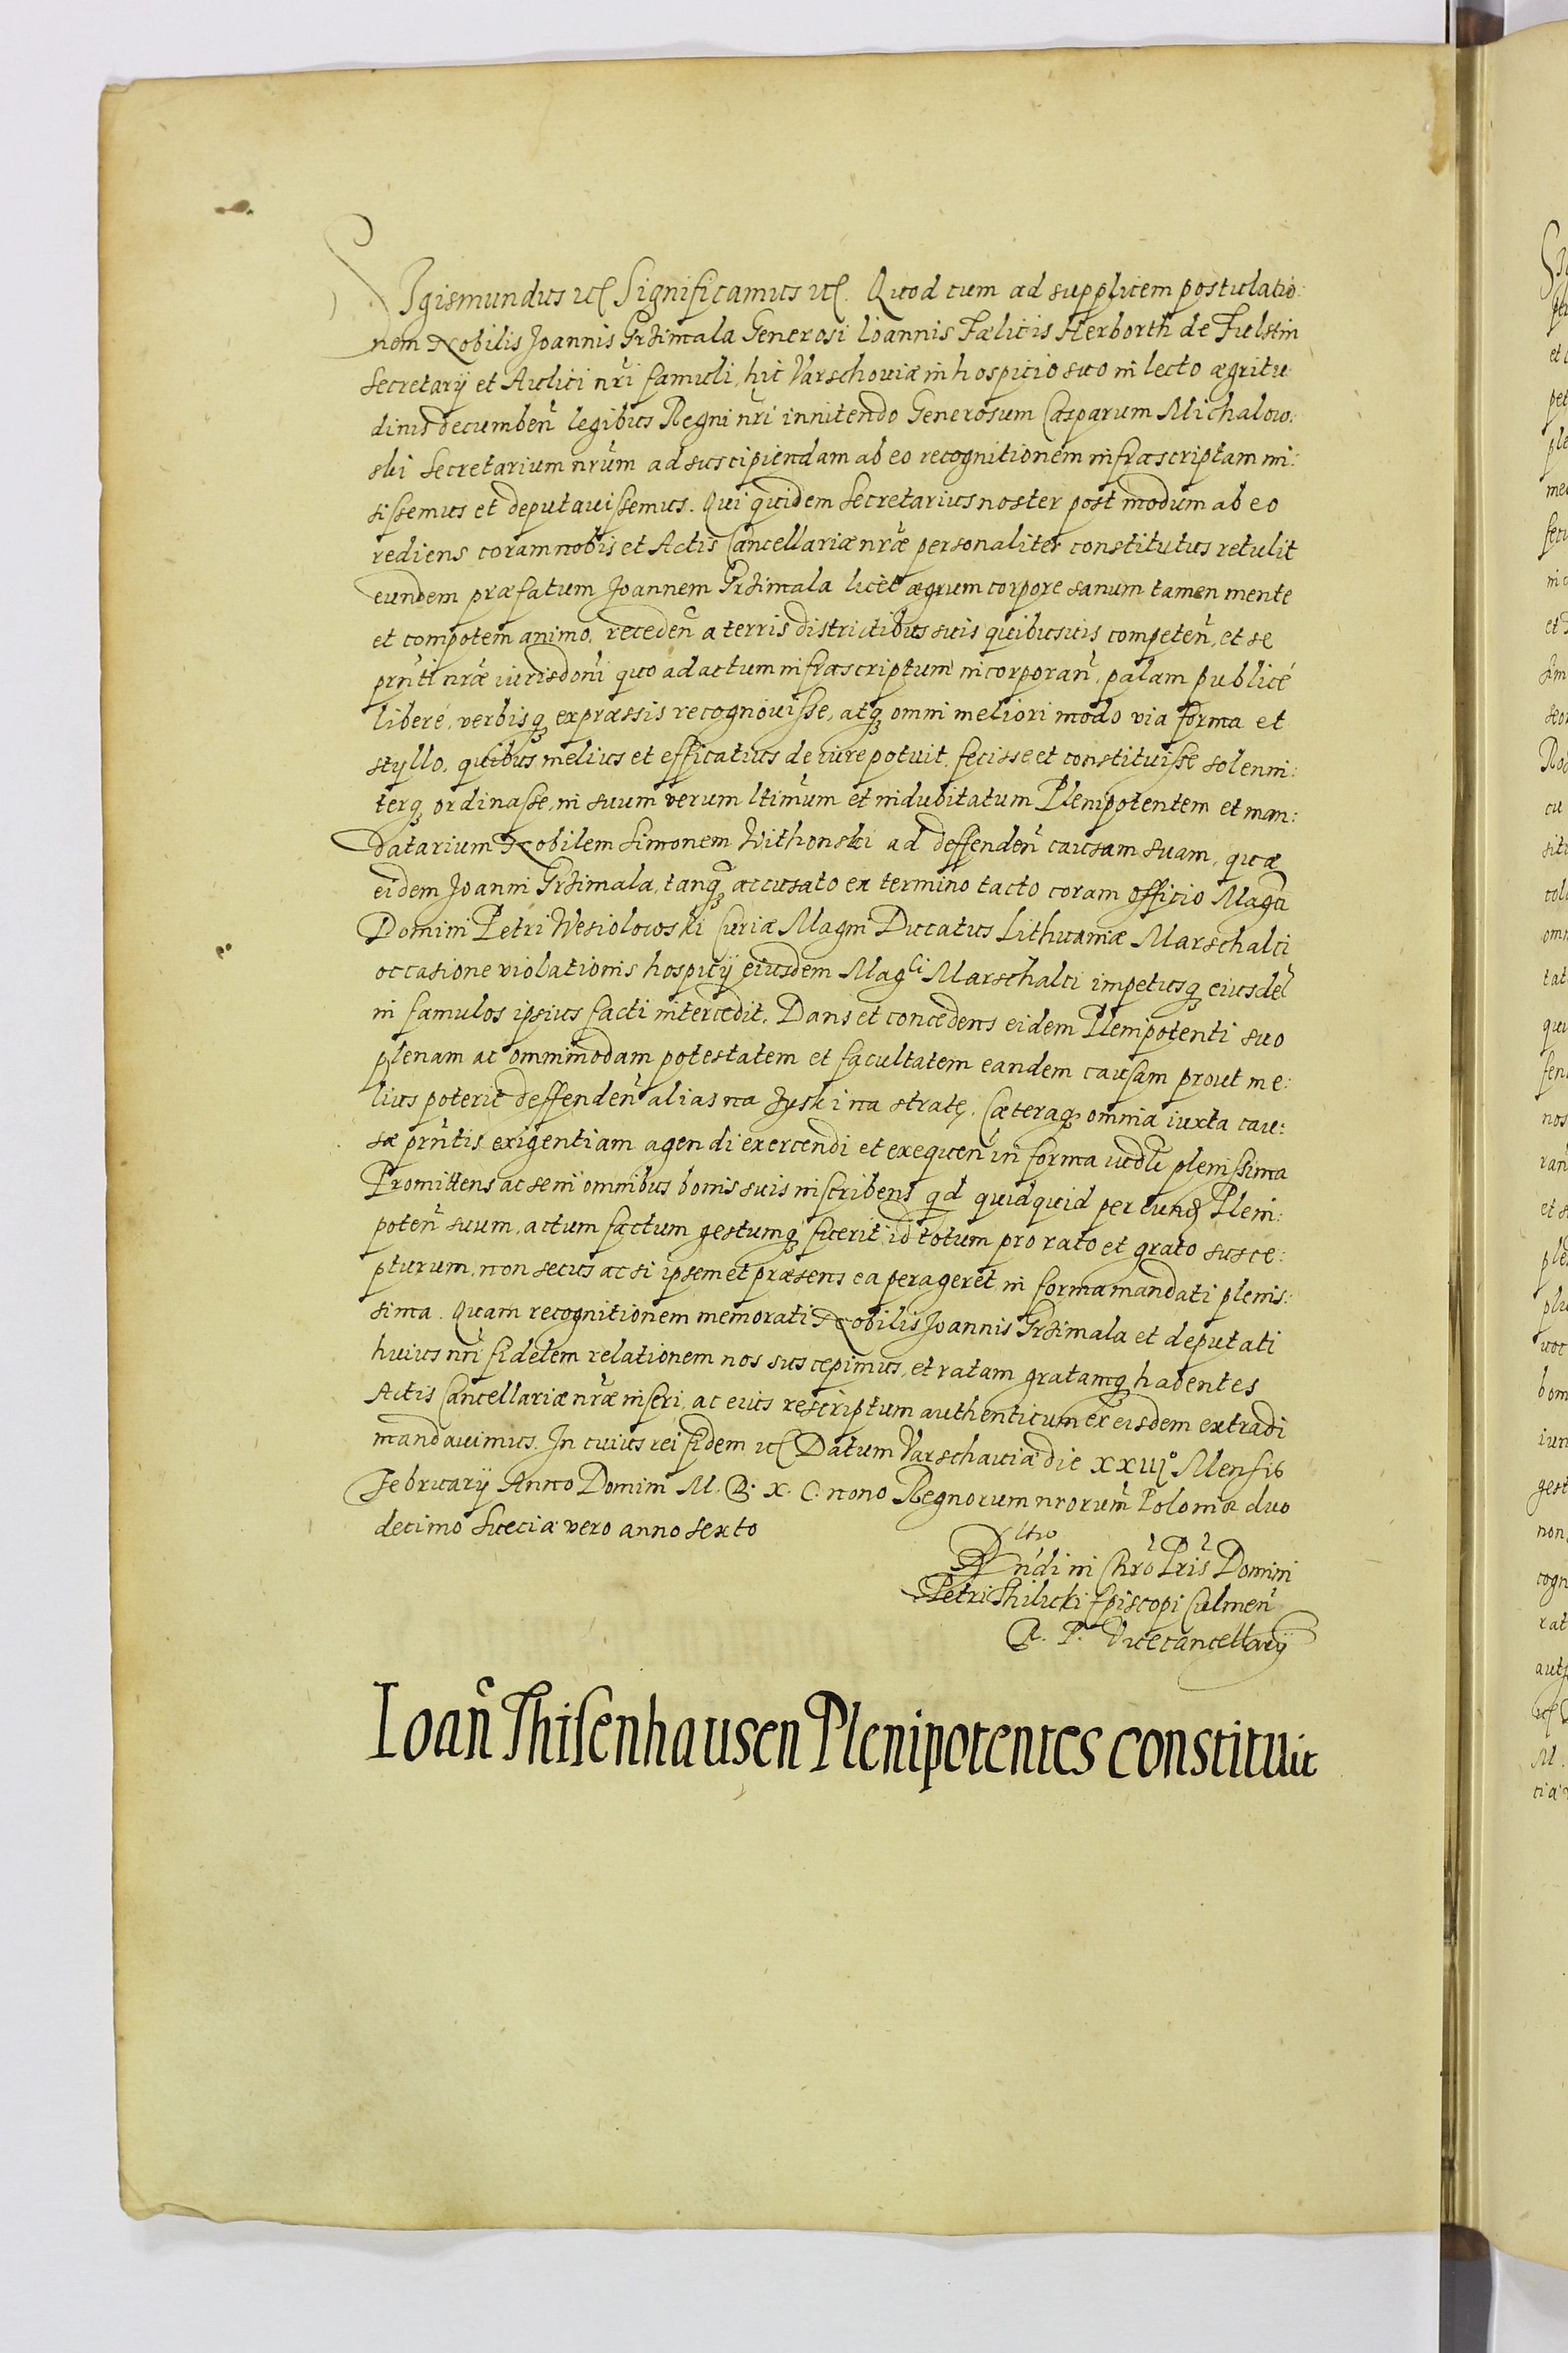 Sigismundus etc Significamus etc. Quod cum ad supplicem postulatio:
nem Nobilis Joannis Grzimala Generosi Ioannis Fælicis Herborth de Fulstin
Secretarij et Aulici nri famuli, hic Varschouiæ in hospicio suo in lecto ægritu
dinis decumben̄ legibus Regni nri innitendo Generosum Casparum Michalow:
ski Secretarium nrum ad suscipiendam ab eo recognitionem infrascriptam mi:
sissemus et deputauissemus. Qui quidem Secretarius noster post modum ab eo
rediens coram nobis et Actis Cancellariæ nræ personaliter constitutus retulit
eundem præfatum Joannem Grzimala licèt ægrum corpore sanum tamen mente
et compotem animo, receden̄ a terris districtibus suis quibusuis competen̄, et se
prnti nræ iurisdoni quo ad actum infrascriptum incorporan̄, palam publicé
liberé, verbisq expræssis recognouisse, atq omni meliori modo via forma et
styllo, quibus melius et efficatius de iure potuit, fecisse et constituisse solenni:
terq ordinasse, in suum verum ltimum et indubitatum Plenipotentem et man:
datarium Nobilem Simonem Withonski ad deffenden̄ causam suam, quæ
eidem Joanni Grzimala, tanq accusato ex termino tacto coram officio Magci
Domini Petri Wesiolowski Curiæ Magni Ducatus Lithuaniæ Marschalci
occasione violationis hospicij eiusdem Magci Marschalci impetusq eiusdē
in famulos ipsius facti intercedit. Dans et concedens eidem Plenipotenti suo
plenam ac omnimodam potestatem et facultatem eandem causam prout me:
lius poterit deffenden̄ alias na zysk i na stratę. Cæteraq omnia iuxta cau:
sæ prntis exigentiam agendi exercendi et exequen̄ in forma iudli plenissima
Promittens ac se in omnibus bonis suis inscribens qd quidquid per eund Pleni:
poten̄ suum, actum factum gestumq fuerit, id totum pro rato et grato susce:
pturum, non secus ac si ipsemet præsens ea perageret, in forma mandati plenis:
sima. Quam recognitionem memorati Nobilis Joannis Grzimala et deputati
huius nri fidelem relationem nos suscepimus, et ratam gratamq habentes
Actis Cancellariæ nræ inseri, ac eius rescriptum authenticum ex eisdem extradi
mandauimus. In cuius rei fidem etc Datum Varschauiæ die XXIIIº Mensis
Februarij Anno Domini M. D. X. C. nono Regnorum nrorum Poloniæ duo
decimo Sueciæ vero anno sexto
Rltio
Rndi in Chro Pris Domini
Petri Thilicki Episcopi Culmen̄
R. P. Vicecancellarij
Ioan̄ Thisenhausen Plenipotentes constituit